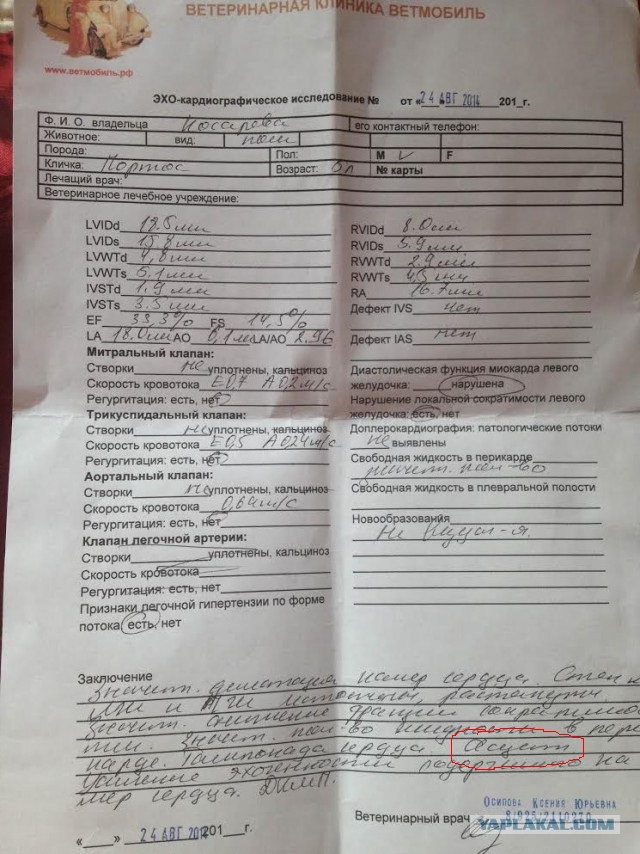 ВЕТЕРИНАРНАЯ КЛИНИКА ВЕТМОБИЛЬ
www.ветмобиль.рф
ЭХО-кардиографическое исследование № от «24 АВГ 2014 201_г.
Ф. И. О. владельца Косарева его контактный телефон:
Животное: вид:
Порода: Пол: М ✓ F
Кличка: Портос Возраст: № карты
Лечащий врач:
Ветеринарное лечебное учреждение:
LVIDd мм
LVIDs мм
LVWTd 4,8мм
LVWTs 5,1мм
IVSTd 1,9мм
IVSTs 3,5мм
EF 33,3% FS 14,5%
LA 18.0мм АО LA/AO 2.96
Митральный клапан:
Створки не уплотнены, кальциноз
Скорость кровотока E0,7 A0,2м/с
Регургитация: есть, нет
Трикуспидальный клапан:
Створки не уплотнены, кальциноз
Скорость кровотока E0,5 A0,24м/с
Регургитация: есть, нет
Аортальный клапан:
Створки не уплотнены, кальциноз
Скорость кровотока 0,64м/с
Регургитация: есть, нет
Клапан легочной артерии:
Створки уплотнены, кальциноз
Скорость кровотока
Регургитация: есть, нет
Признаки легочной гипертензии по форме
потока есть, нет
RVIDd 8.0мм
RVIDs 5.9мм
RVWTd 2.9мм
RVWTs мм
RA 16.7мм
Дефект IVS нет
Дефект IAS нет
Диастолическая функция миокарда левого
желудочка: нарушена
Нарушение локальной сократимости левого
желудочка: есть, нет
Доплерокардиография: патологические потоки
не выявлены
Свободная жидкость в перикарде
значит. кол-во
Свободная жидкость в плевральной полости
Новообразования
Не
Заключение
Значит. дилатация камер сердца. Стенки
истончены, растянуты
Значит. снижение фракции сократимос
ти. Значит. кол-во жидкости в пери
карде. Тампонада сердца. Асцит
на
мер сердца. ДКМП.
ОСИПОВА КСЕНИЯ ЮРЬЕВНА
Ветеринарный врач
«__» 24 АВГ 2014 201__г.
YAPLAKAL.COM